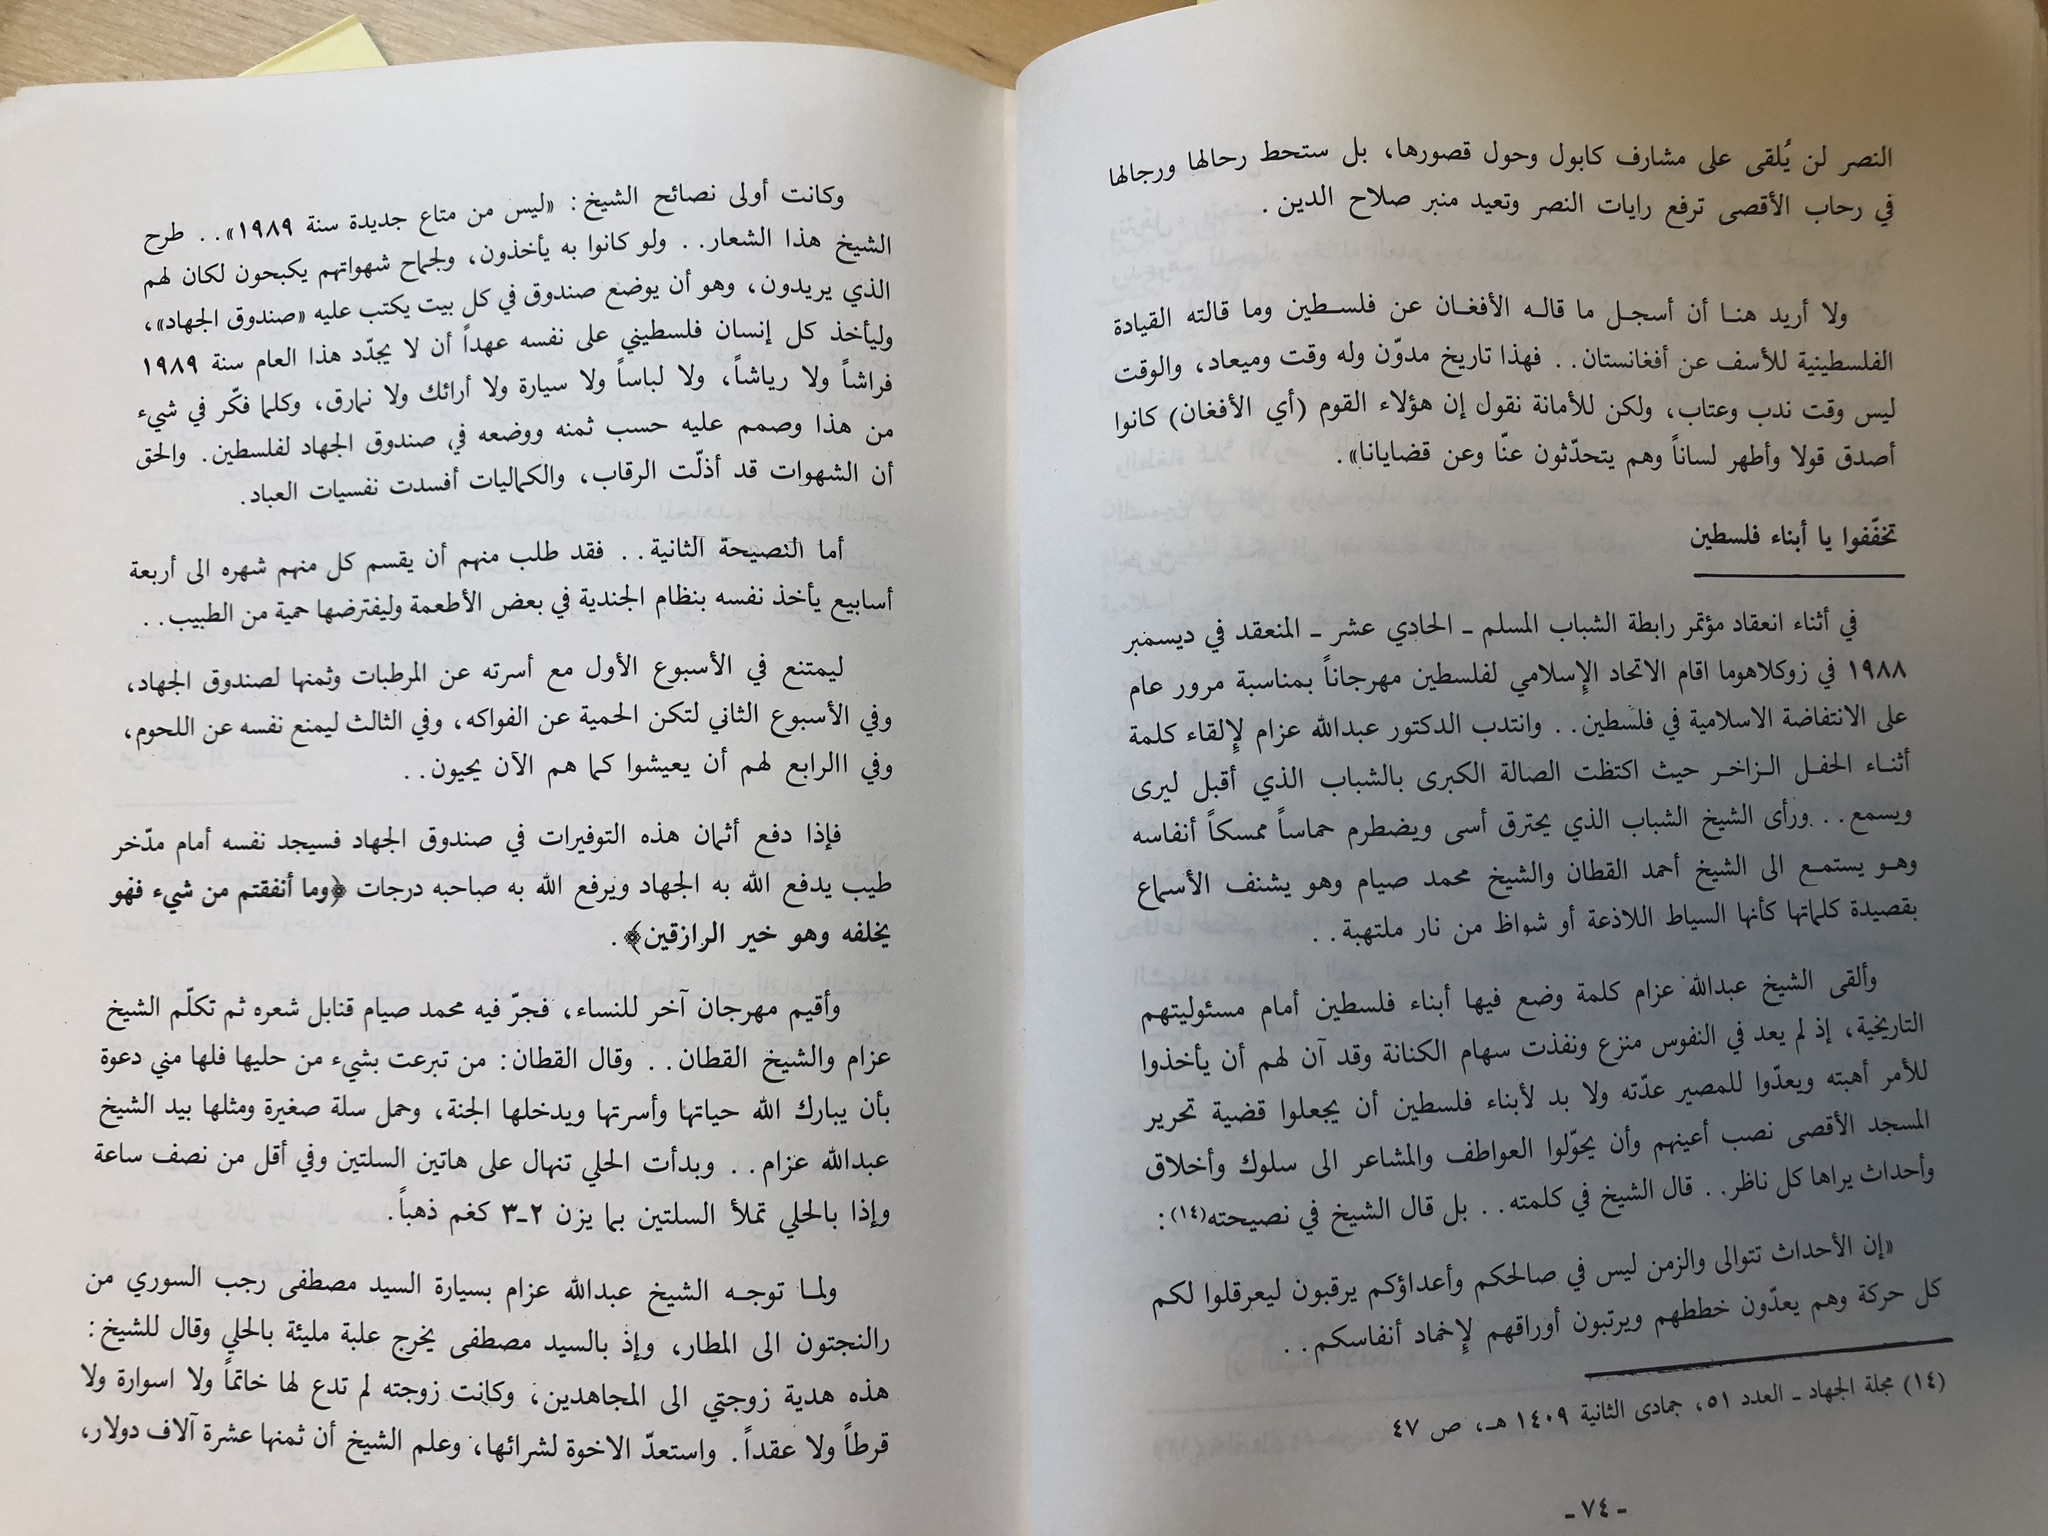 النصر لن يُلقى على مشارف كابول وحول قصورها، بل ستحط رحالها ورجالها
في رحاب الأقصى ترفع رايات النصر وتعيد منبر صلاح الدين .
ولا أريد هنـا أن أسجـل ما قالـه الأفغـان عن فلسـطين وما قالته القيادة
الفلسطينية للأسف عن أفغانستان . . فهذا تاريخ مدوّن وله وقت وميعاد، والوقت
ليس وقت ندب وعتاب، ولكن للأمانة نقول إن هؤلاء القوم (أي الأفغان) كانوا
أصدق قولا وأطهر لساناً وهم يتحدّثون عنّا وعن قضايانا».
تخفّفوا يا أبناء فلسطين
في أثناء انعقاد مؤتمر رابطة الشباب المسلم ـ الحادي عشر ـ المنعقد في ديسمبر
١٩٨٨ في زوكلاهوما اقام الاتحاد الإسلامي لفلسطين مهرجاناً بمناسبة مرور عام
على الانتفاضة الاسلامية في فلسطين . . وانتدب الدكتور عبدالله عزام لإلقاء كلمة
أثنـاء الحفـل الـزاخـر حيث اكتظت الصالة الكبرى بالشباب الذي أقبل ليرى
ويسمع . . ورأى الشيخ الشباب الذي يحترق أسى ويضطرم حماساً ممسكاً أنفاسه
وهـو يستمـع الى الشيخ أحمد القطان والشيخ محمد صيام وهو يشنف الأسماع
بقصيدة كلماتها كأنها السياط اللاذعة أو شواظ من نار ملتهبة . .
وألقى الشيخ عبدالله عزام كلمة وضع فيها أبناء فلسطين أمام مسئوليتهم
التاريخية، إذ لم يعد في النفوس منزع ونفذت سهام الكنانة وقد آن لهم أن يأخذوا
للأمر أهبته ويعدّوا للمصير عدّته ولا بد لأبناء فلسطين أن يجعلوا قضية تحرير
المسجد الأقصى نصب أعينهم وأن يحوّلوا العواطف والمشاعر الى سلوك وأخلاق
وأحداث يراها كل ناظر . . قال الشيخ في كلمته . . بل قال الشيخ في نصيحته(١٤) :
«إن الأحداث تتوالى والزمن ليس في صالحكم وأعداؤكم يرقبون ليعرقلوا لكم
كل حركة وهم يعدّون خططهم ويرتبون أوراقهم لإخماد أنفاسكم . .
(١٤) مجلة الجهاد ـ العدد ٥١، جمادى الثانية ١٤٠٩ هـ، ص ٤٧
ـ ٧٤ ـ
وكانت أولى نصائح الشيخ : «ليس من متاع جديدة سنة ١٩٨٩» . . طرح
الشيخ هذا الشعار . . ولو كانوا به يأخذون، ولجماح شهواتهم يكبحون لكان لهم
الذي يريدون، وهو أن يوضع صندوق في كل بيت يكتب عليه «صندوق الجهاد»،
وليأخذ كل إنسان فلسطيني على نفسه عهداً أن لا يجدّد هذا العام سنة ١٩٨٩
فراشاً ولا رياشاً، ولا لباساً ولا سيارة ولا أرائك ولا نمارق، وكلما فكّر في شيء
من هذا وصمم عليه حسب ثمنه ووضعه في صندوق الجهاد لفلسطين. والحق
أن الشهوات قد أذلّت الرقاب، والكماليات أفسدت نفسيات العباد.
أما النصيحة الثانية . . فقد طلب منهم أن يقسم كل منهم شهره الى أربعة
أسابيع يأخذ نفسه بنظام الجندية في بعض الأطعمة وليفترضها حمية من الطبيب . .
ليمتنع في الأسبوع الأول مع أسرته عن المرطبات وثمنها لصندوق الجهاد،
وفي الأسبوع الثاني لتكن الحمية عن الفواكه، وفي الثالث ليمنع نفسه عن اللحوم،
وفي االرابع لهم أن يعيشوا كما هم الآن يحيون . .
فإذا دفع أثمان هذه التوفيرات في صندوق الجهاد فسيجد نفسه أمام مدّخر
طيب يدفع الله به الجهاد ويرفع الله به صاحبه درجات ﴿وما أنفقتم من شيء فهو
يخلفه وهو خير الرازقين﴾ .
وأقيم مهرجان آخر للنساء، فجرّ فيه محمد صيام قنابل شعره ثم تكلّم الشيخ
عزام والشيخ القطان . . وقال القطان: من تبرعت بشيء من حليها فلها مني دعوة
بأن يبارك الله حياتها وأسرتها ويدخلها الجنة، وحمل سلة صغيرة ومثلها بيد الشيخ
عبدالله عزام . . وبدأت الحلي تنهال على هاتين السلتين وفي أقل من نصف ساعة
وإذا بالحلي تملأ السلتين بما يزن ٢ـ٣ كغم ذهباً.
ولمـا توجـه الشيخ عبدالله عزام بسيارة السيد مصطفى رجب السوري من
رالنجتون الى المطار، وإذ بالسيد مصطفى يخرج علبة مليئة بالحلي وقال للشيخ :
هذه هدية زوجتي الى المجاهدين، وكانت زوجته لم تدع لها خاتماً ولا اسوارة ولا
قرطاً ولا عقداً. واستعدّ الاخوة لشرائها، وعلم الشيخ أن ثمنها عشرة آلاف دولار،